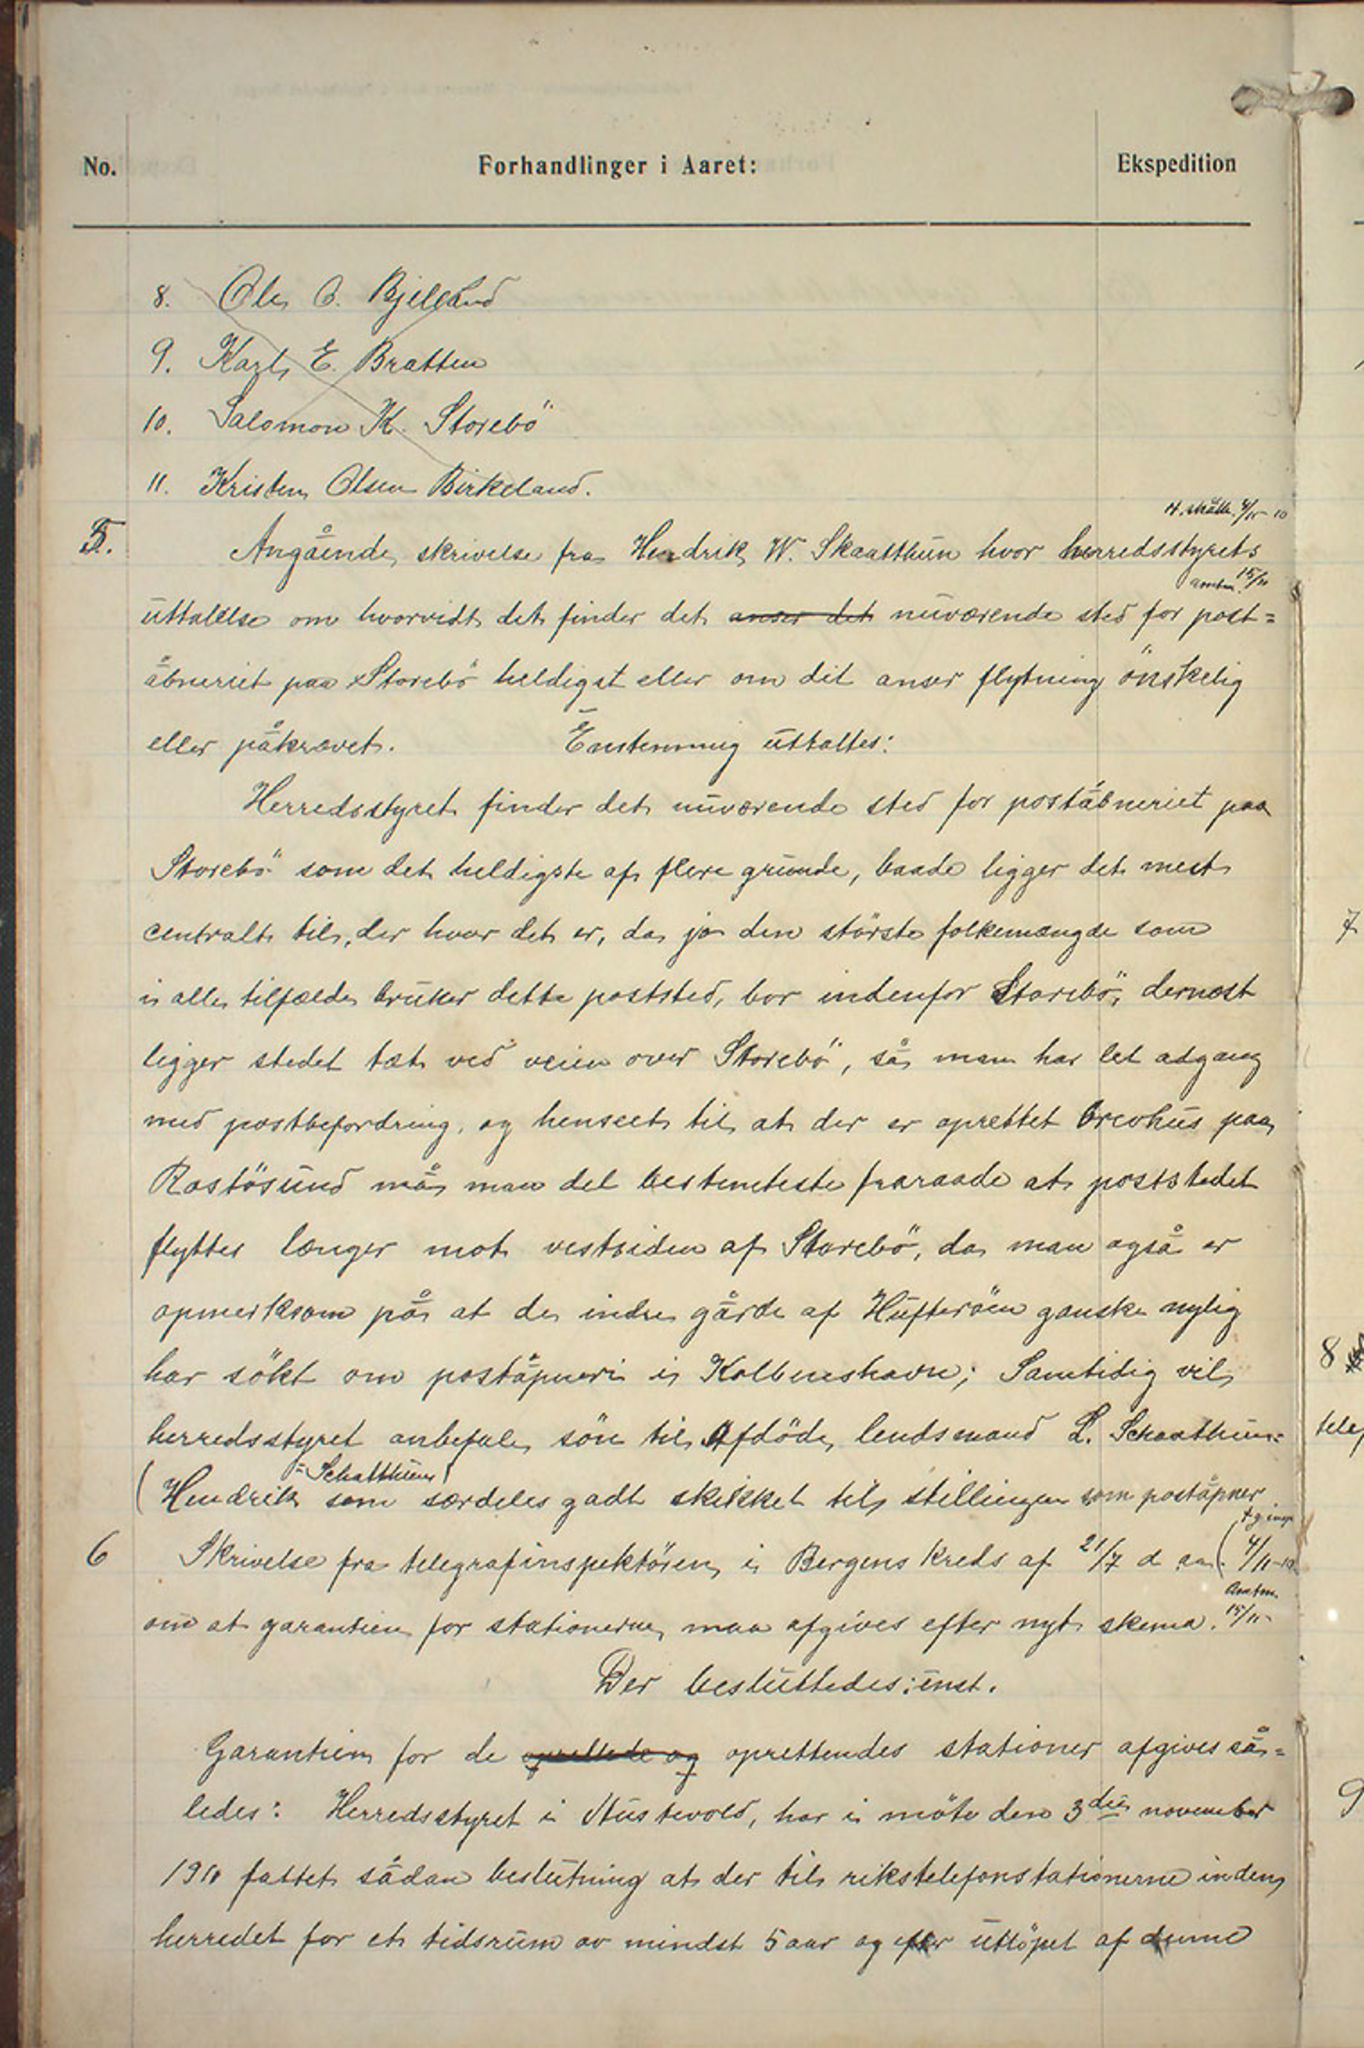 No. Forhandlinger i Aaret: Ekspedition
8. Ole O. Bjelland
9. Karl E. Bratten
10. Salomon K. Storebö
11. Kristen Olsen Birkeland.
H. skåth. 4/11-10
5. Angående skrivelse fra Hendrik W. Skaatthun hvor herredsstyrets
amtm. 15/11
uttalelse om hvorvidt det finder det anser det nuværende sted for post=
åbneriet paa Storebö heldigst eller om det anser flytning önskelig
eller påkrævet. Enstemmig uttaltes:
Herredsstyret finder det nuværende sted for poståbneriet paa
Storebö som det heldigste af flere grunde, baade ligger det mest
centralt til, der hvor det er, da jo den störste folkemængde som
i alle tilfælde bruker dette poststed, bor indenfor Storebö, dernæst
ligger stedet tæt ved veien over Storebö, så man har let adgang
med postbefordring, og henseet til at der er oprettet brevhus paa
Rostösund må man det bestemteste fraraade at poststedet
flyttes længer mot vestsiden af Storebö, da man også er
opmerksom på at de indre gårde af Hufteröen ganske nylig
har sökt om poståpneri i Kolbenshavn; Samtidig vil
herredsstyret anbefale sön til Afdöde lendsmand L. Schaathun=
= Schatthun
(Hendrik som særdeles godt skikket til stillingen som poståpner
tg. insp.
6 Skrivelse fra telegrafinspektören i Bergens kreds af 21/7 d aa. (4/11-10
Amtm.
om at garantien for stationerne maa afgives efter nyt skema. 15/11-
Der besluttedes: enst.
Garantien for de oprettede og oprettendes stationer afgives så=
ledes: Herredsstyret i Austevold, har i möte den 3die november
1910 fattet sådan beslutning at der til rikstelefonstationerne inden
herredet for et tidsrum av mindst 5 aar og efter utlöpet af denne
7
8
telef
9